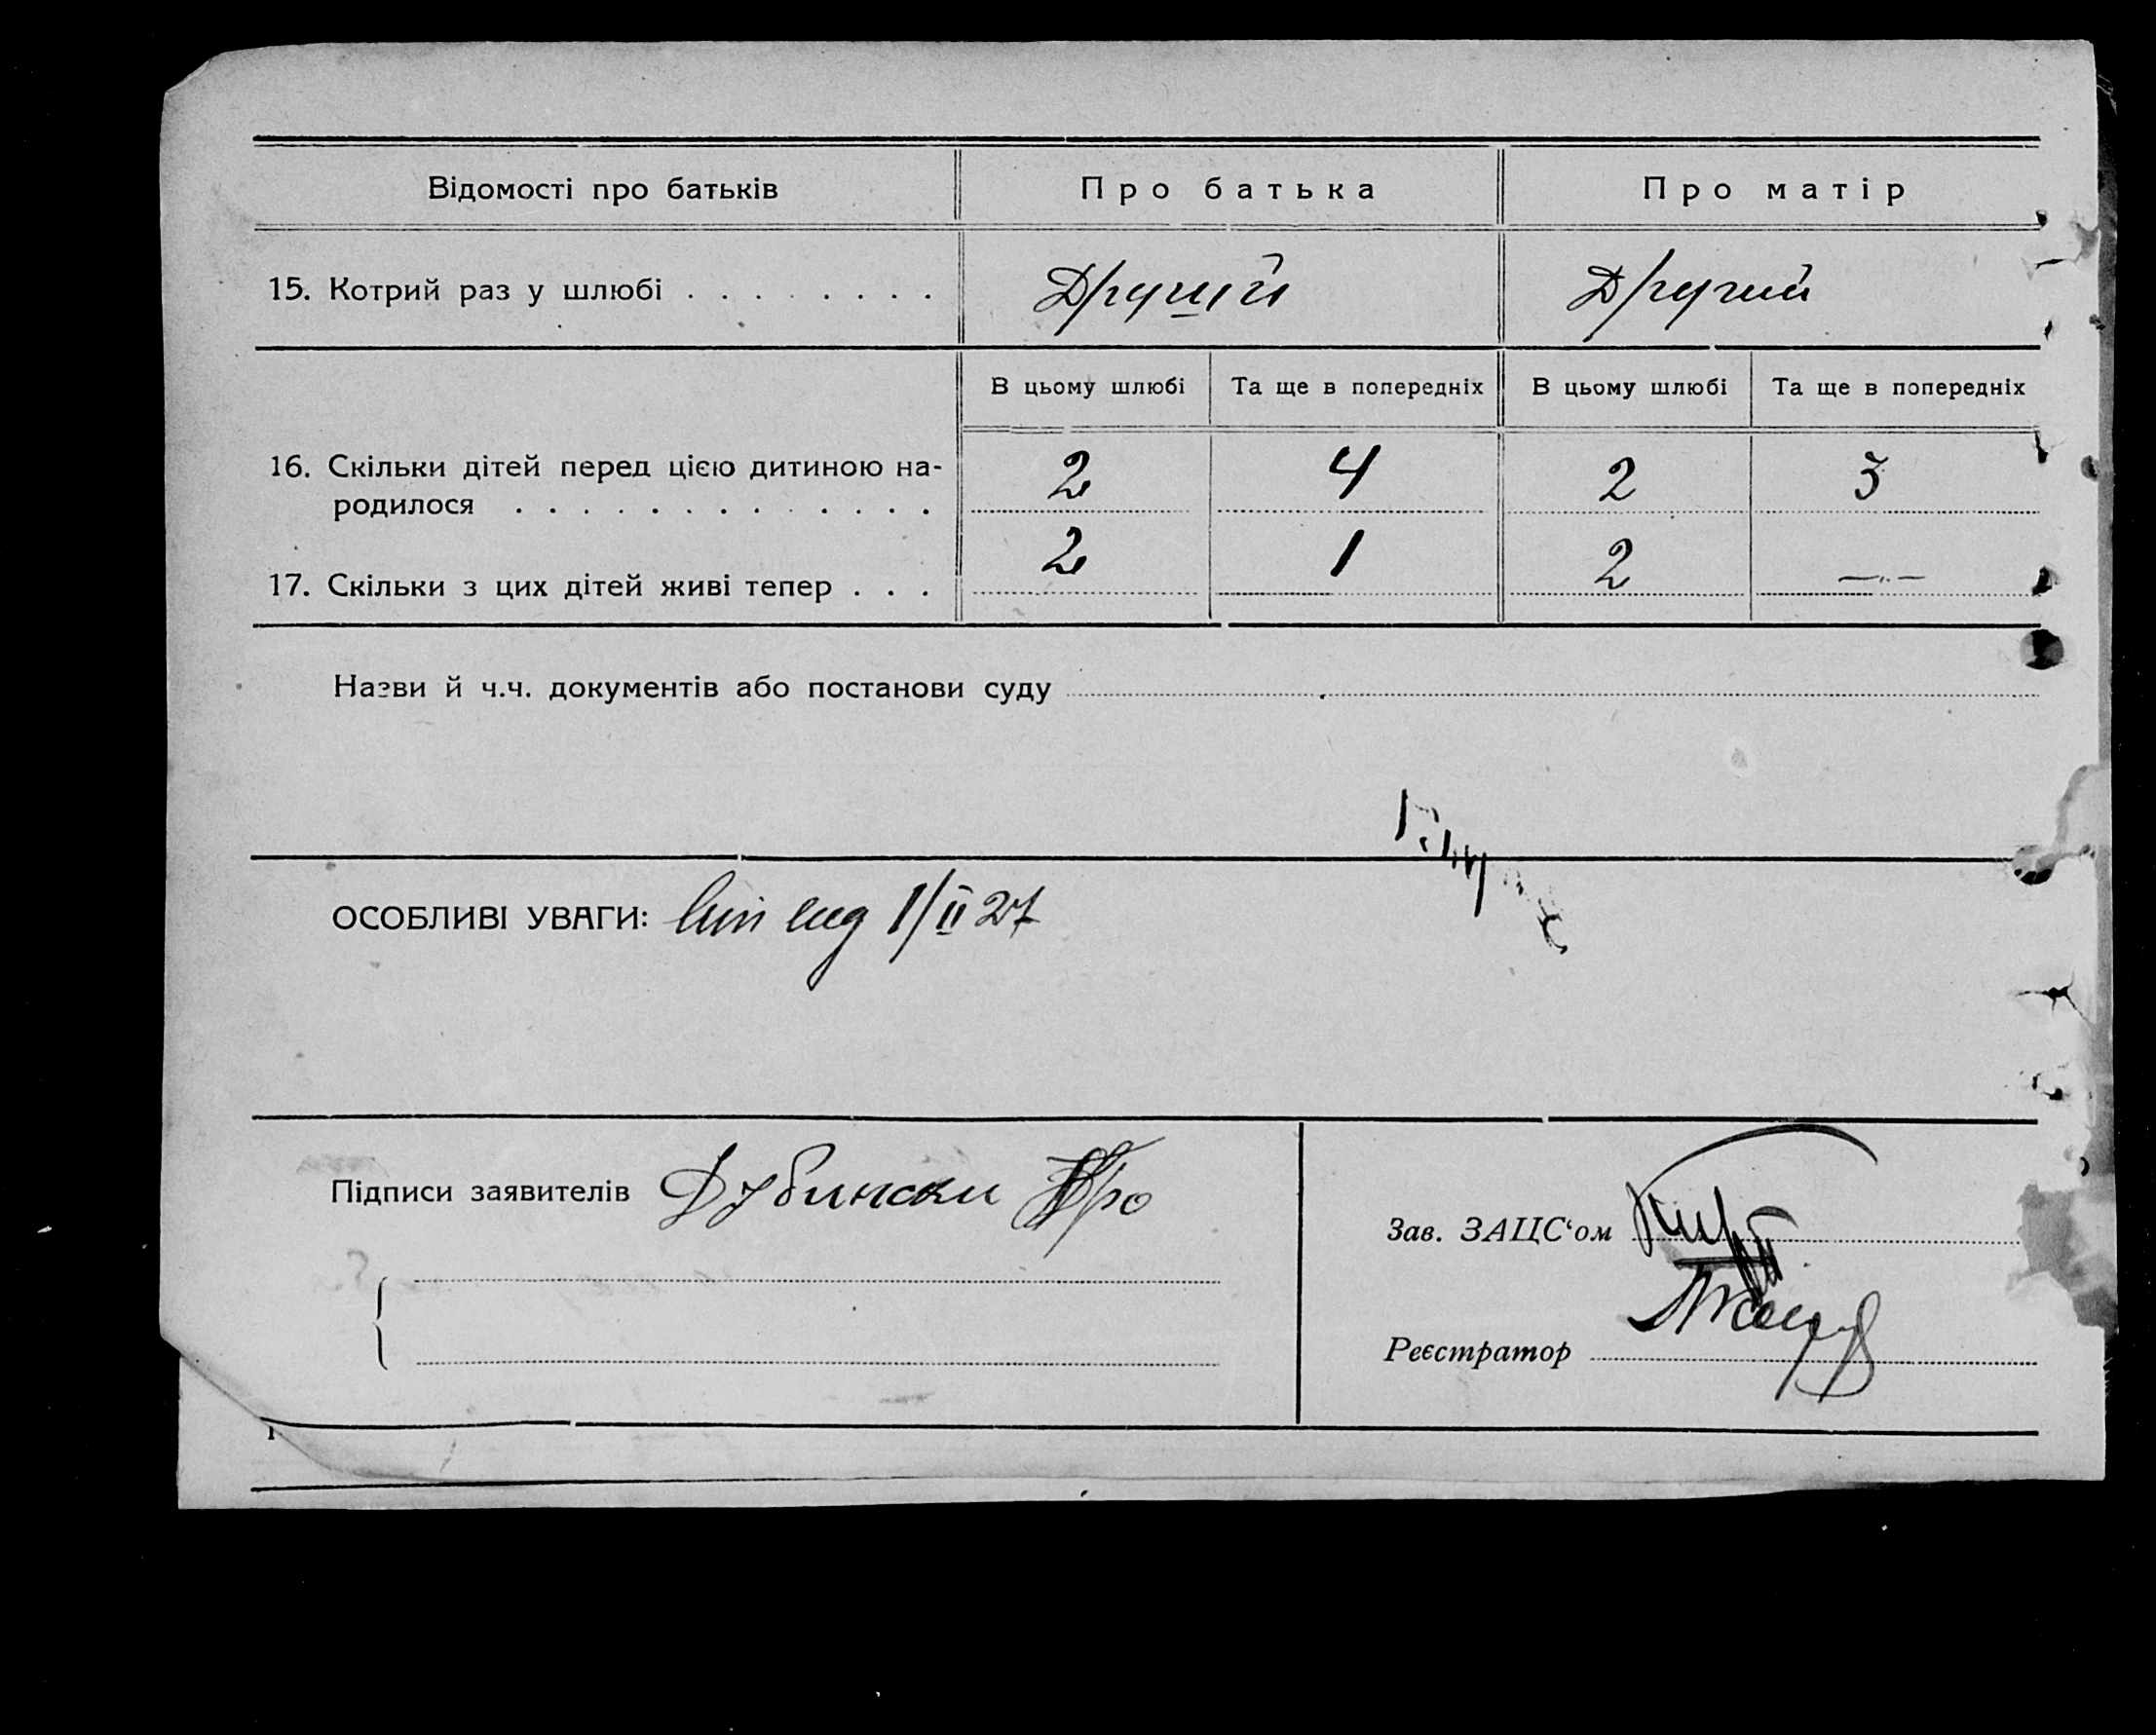 Відомості про батьків Про батька Про матір
15. Котрий раз у шлюбі . . . . . . . . Другий Другий
В цьому шлюбі Та ще в попередніх В цьому шлюбі Та ще в попередніх
16. Скільки дітей перед цією дитиною на-
родилося . . . . . . . . . . . . . 2 4 2 3
17. Скільки з цих дітей живі тепер . . . 2 1 2 —
Назви й ч.ч. документів або постанови суду
ОСОБЛИВІ УВАГИ: 1/II 27
Підписи заявителів Дубински
Зав. ЗАЦС‘ом
Реєстратор